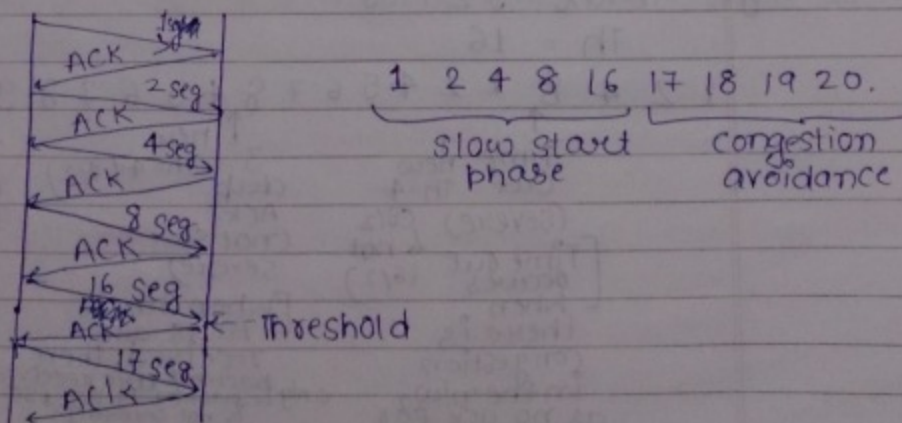 ACK
2 seg
ACK
4 seg
ACK
8 seg
ACK
16 seg
ACK
Threshold
17 seg
ACK
1 2 4 8 16 17 18 19 20.
slow start
phase
congestion
avoidance